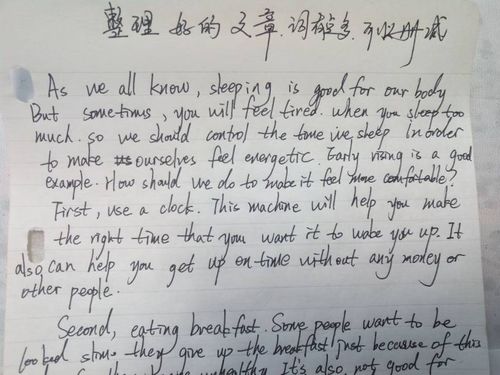 整理好的文章.词有点多.可以删减
As we all know, sleeping is good for our body
But sometimes, you will feel tired. when you sleep too
much. so we should control the time we sleep in order
to make ourselves feel energetic. Early rising is a good
example. How should we do to make it feel more comfortable?
First, use a clock. This machine will help you make
the right time that you want it to wake you up. It
also can help you get up on time without any money or
other people.
Second, eating breakfast. Some people want to be
looked slim. they give up the breakfast just because of this
unhealthy. It's also not good for